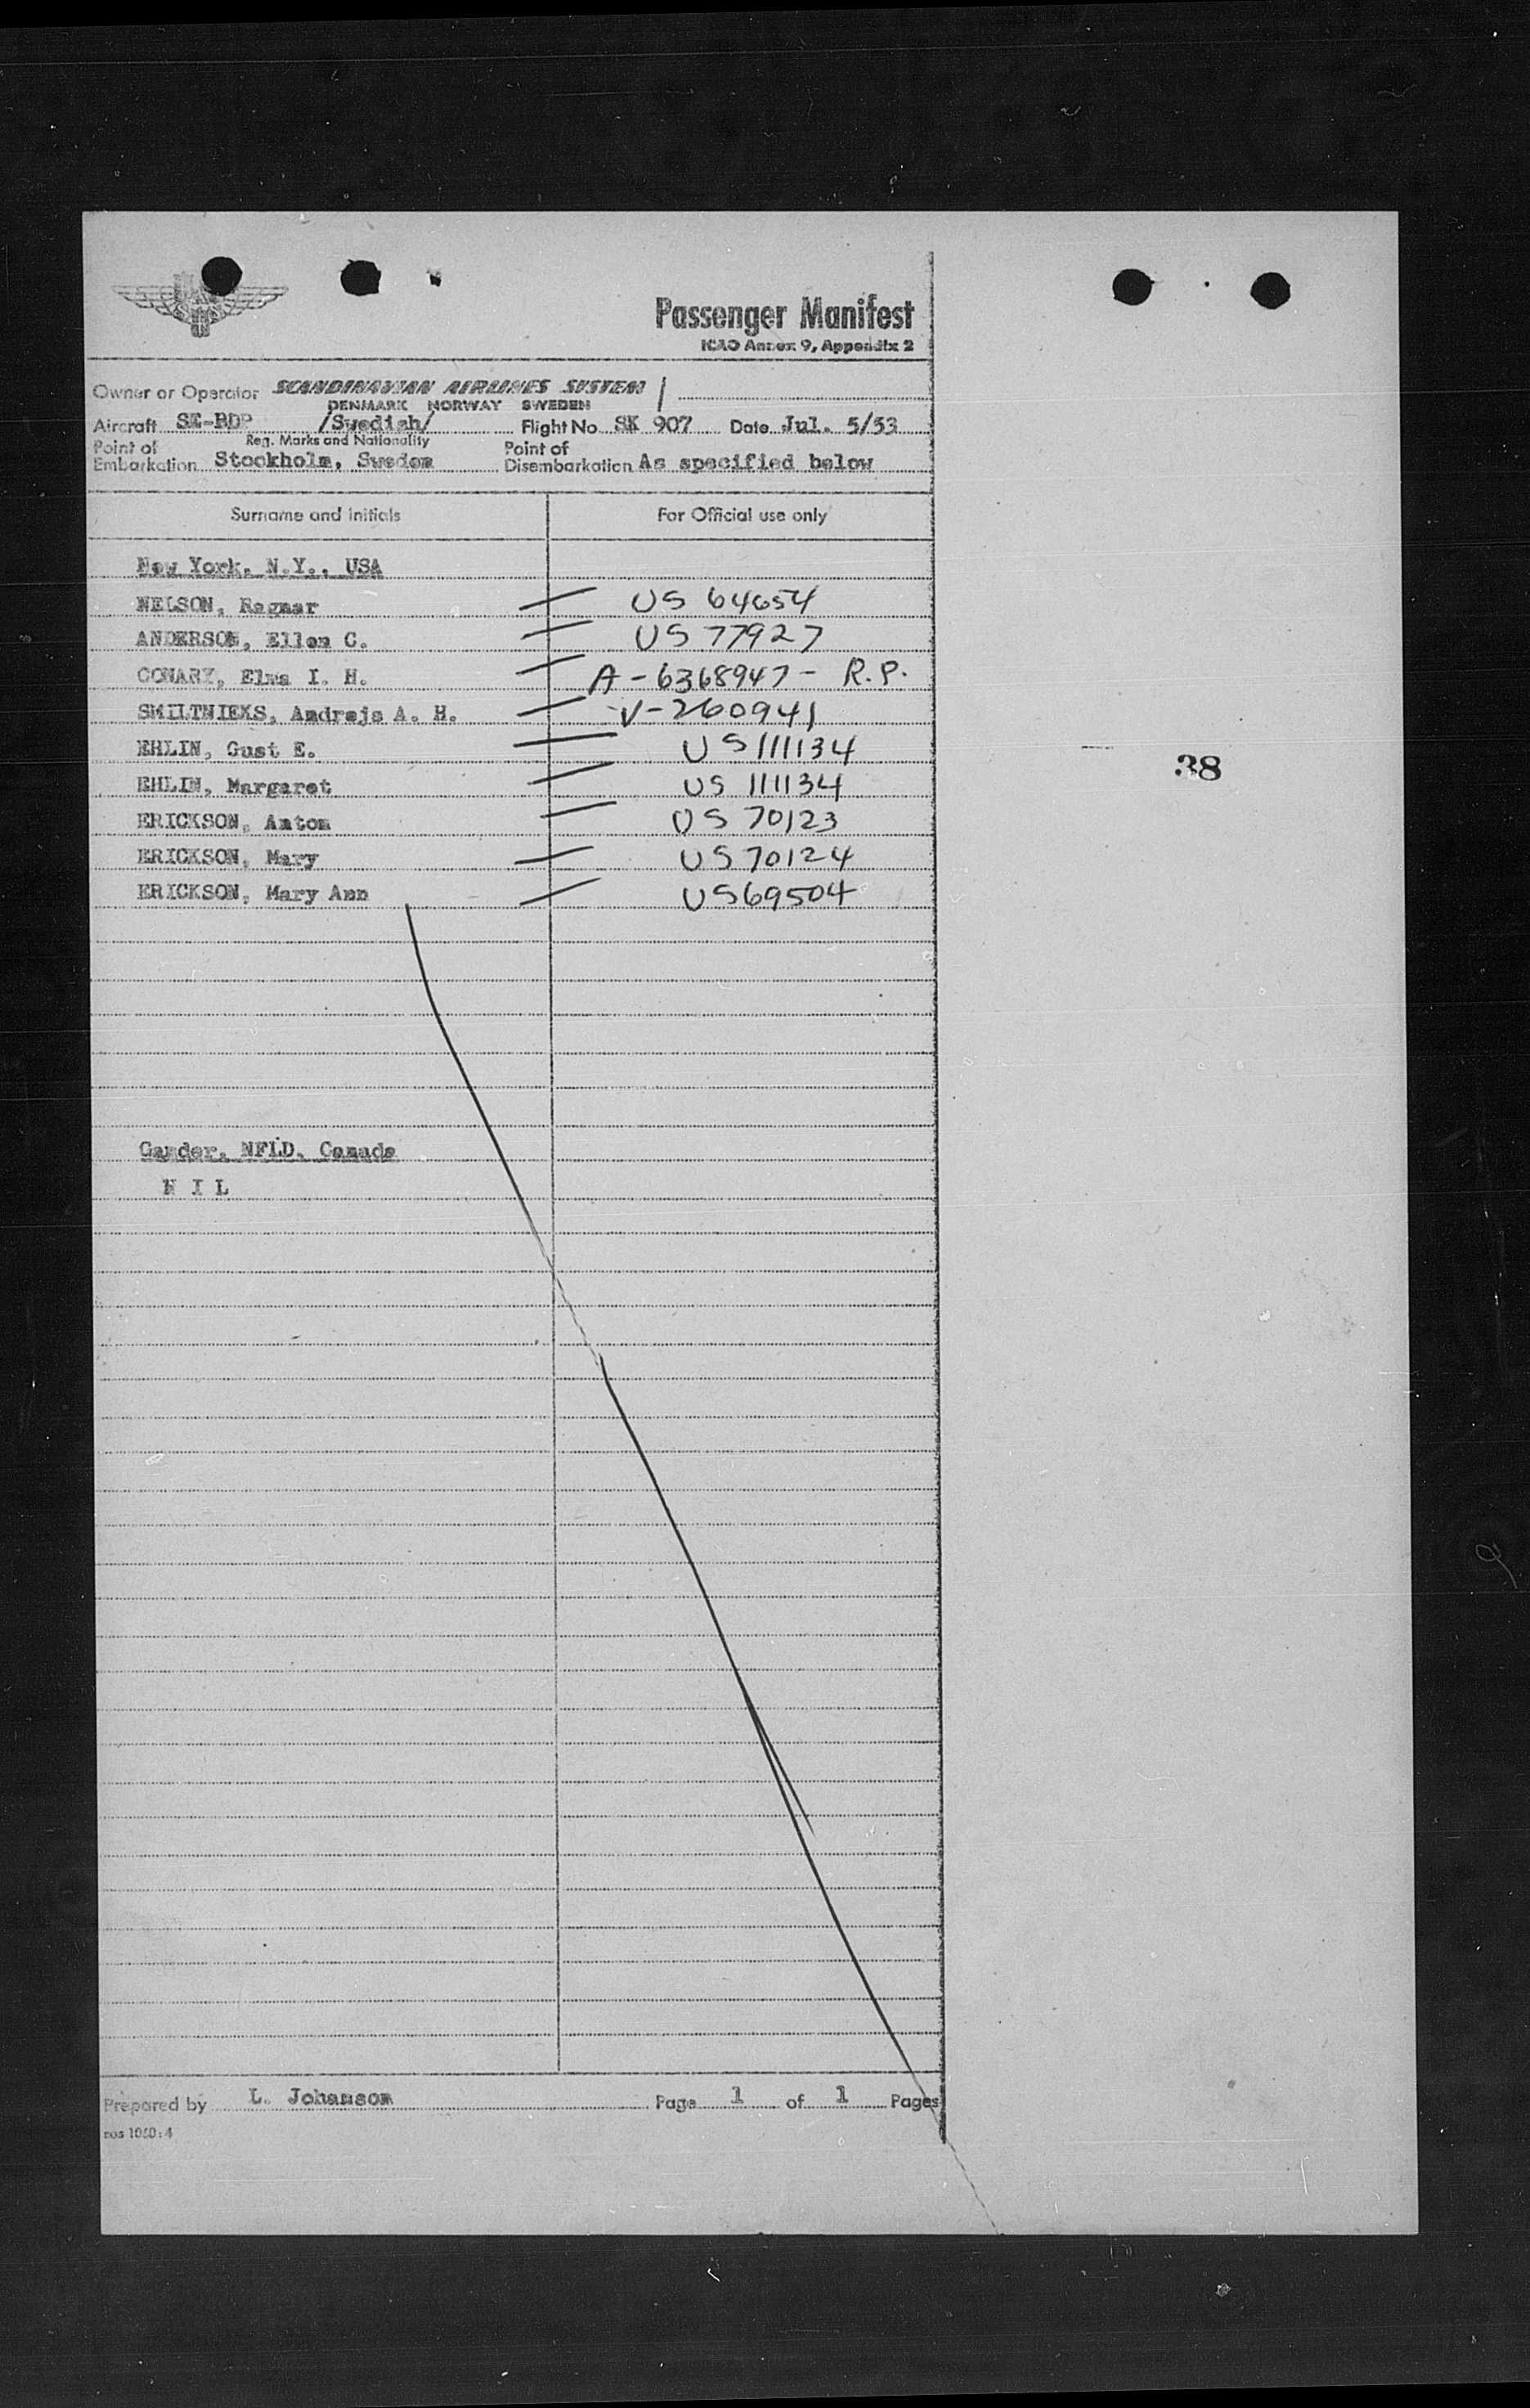 Passenger Manifest
ICAO Annex 9, Appendix 2
Owner or Operator SCANDINAVIAN AIRLINES SYSTEM
DENMARK NORWAY SWEDEN
Aircraft SE-BDP /Swedish/ Flight No SK 907 Date Jul. 5/53
Reg. Marks and Nationality
Point of Embarkation Stockholm, Sweden Point of Disembarkation As specified below
Surname and initials For Official use only
New York, N.Y., USA
NELSON, Ragnar US 64654
ANDERSON, Ellen C. US 77927
CONARY, Elma I. H. A-6368947- R.P.
SMILTNIEKS, Andrejs A. H. V-260941
EHLIN, Gust E. US 111134
EHLIN, Margaret US 111134
38
ERICKSON, Anton US 70123
ERICKSON, Mary US 70124
ERICKSON, Mary Ann US 69504
Gander, NFLD, Canada
N I L
Prepared by L. Johanson Page 1 of 1 Pages